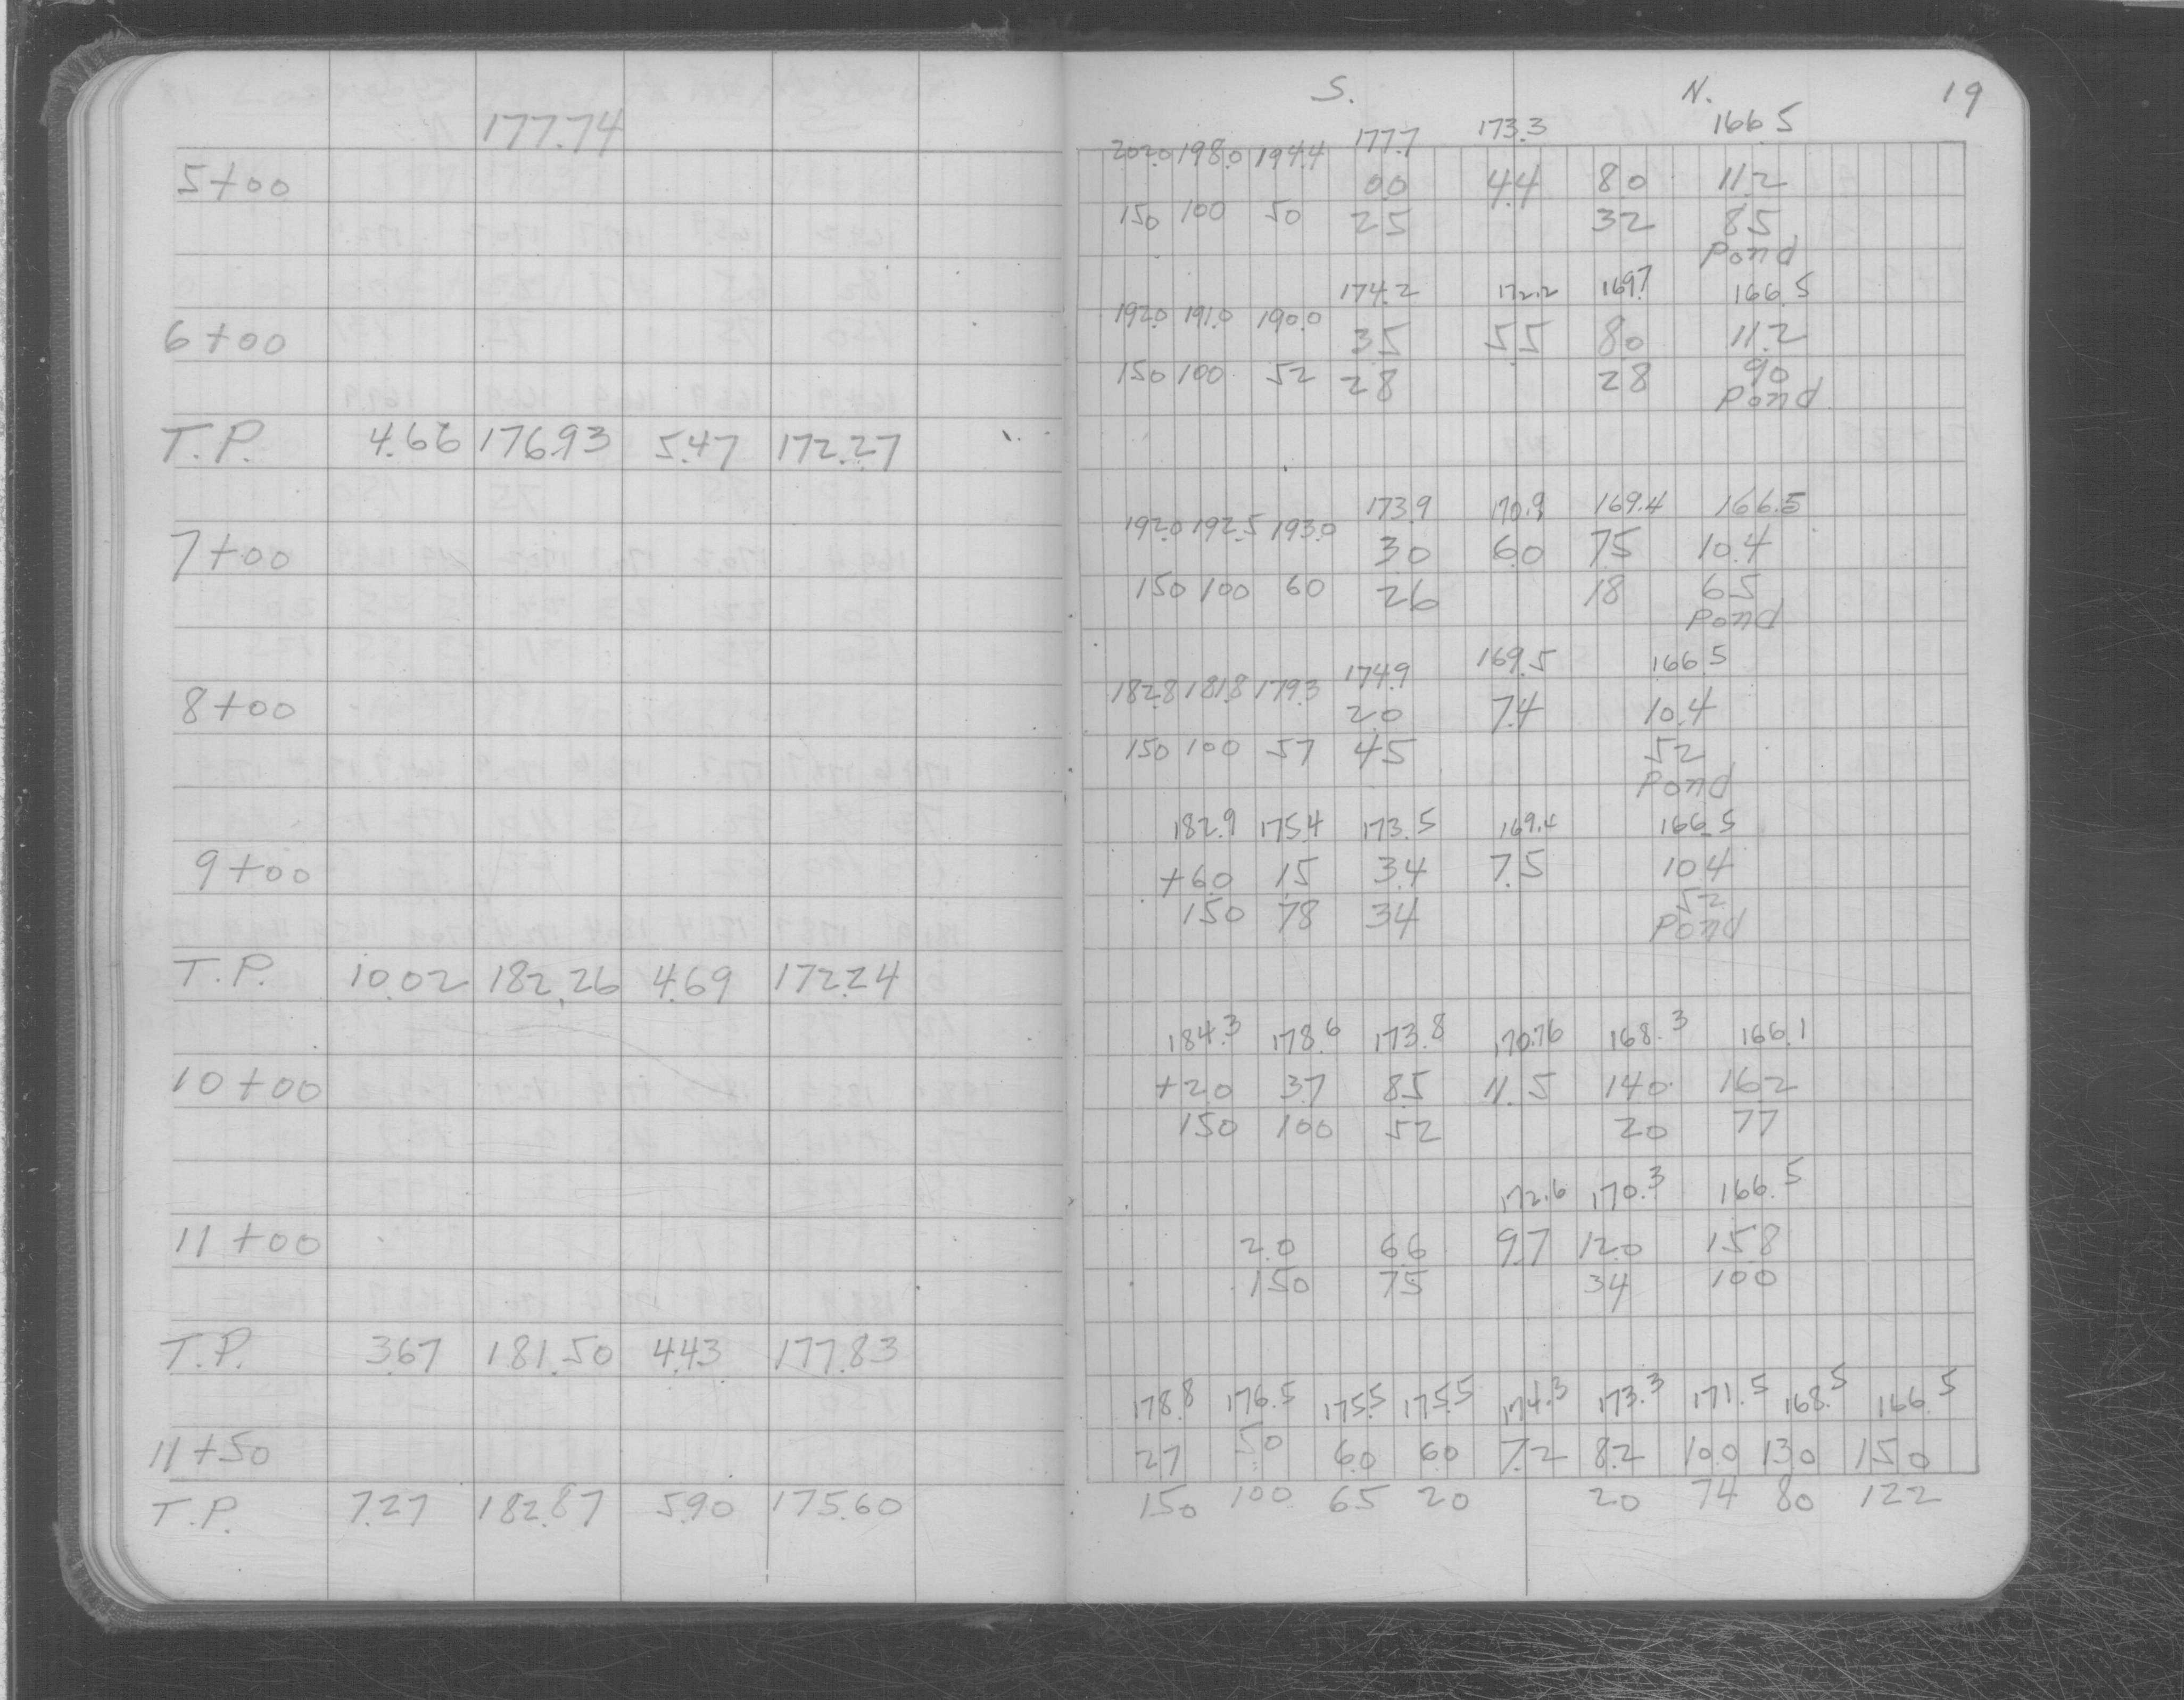 177.74
5+00
6+00
T.P. 4.66 176.93 5.47 172.27
7+00
8+00
9+00
T.P. 10.02 182.26 4.69 172.24
10+00
11+00
T.P. 3.67 181.50 4.43 177.83
11+50
T.P. 7.27 182.87 5.90 175.60
S. N. 19
202.0 198.0 194.4 177.7 173.3 166.5
0.0 4.4 8.0 11.2
150 100 50 25 32 85
Pond
174.2 172.2 169.7 166.5
192.0 191.0 190.0
3.5 5.5 8.0 11.2
150 100 52 28 28 90
Pond
173.9 170.9 169.4 166.5
192.0 192.5 193.0
3.0 6.0 7.5 10.4
150 100 60 26 18 65
Pond
174.9 169.5 166.5
182.8 181.8 179.3
2.0 7.4 10.4
150 100 57 45 52
Pond
182.9 175.4 173.5 169.4 166.5
+6.0 1.5 3.4 7.5 10.4
150 78 34 52
Pond
184.3 178.6 173.8 170.76 168.3 166.1
+2.0 3.7 8.5 11.5 14.0 16.2
150 100 52 20 77
172.6 170.3 166.5
2.0 6.6 9.7 12.0 15.8
150 75 34 100
178.8 176.5 175.5 175.5 174.3 173.3 171.5 168.5 166.5
2.7 5.0 6.0 6.0 7.2 8.2 10.0 13.0 15.0
150 100 65 20 20 74 80 122